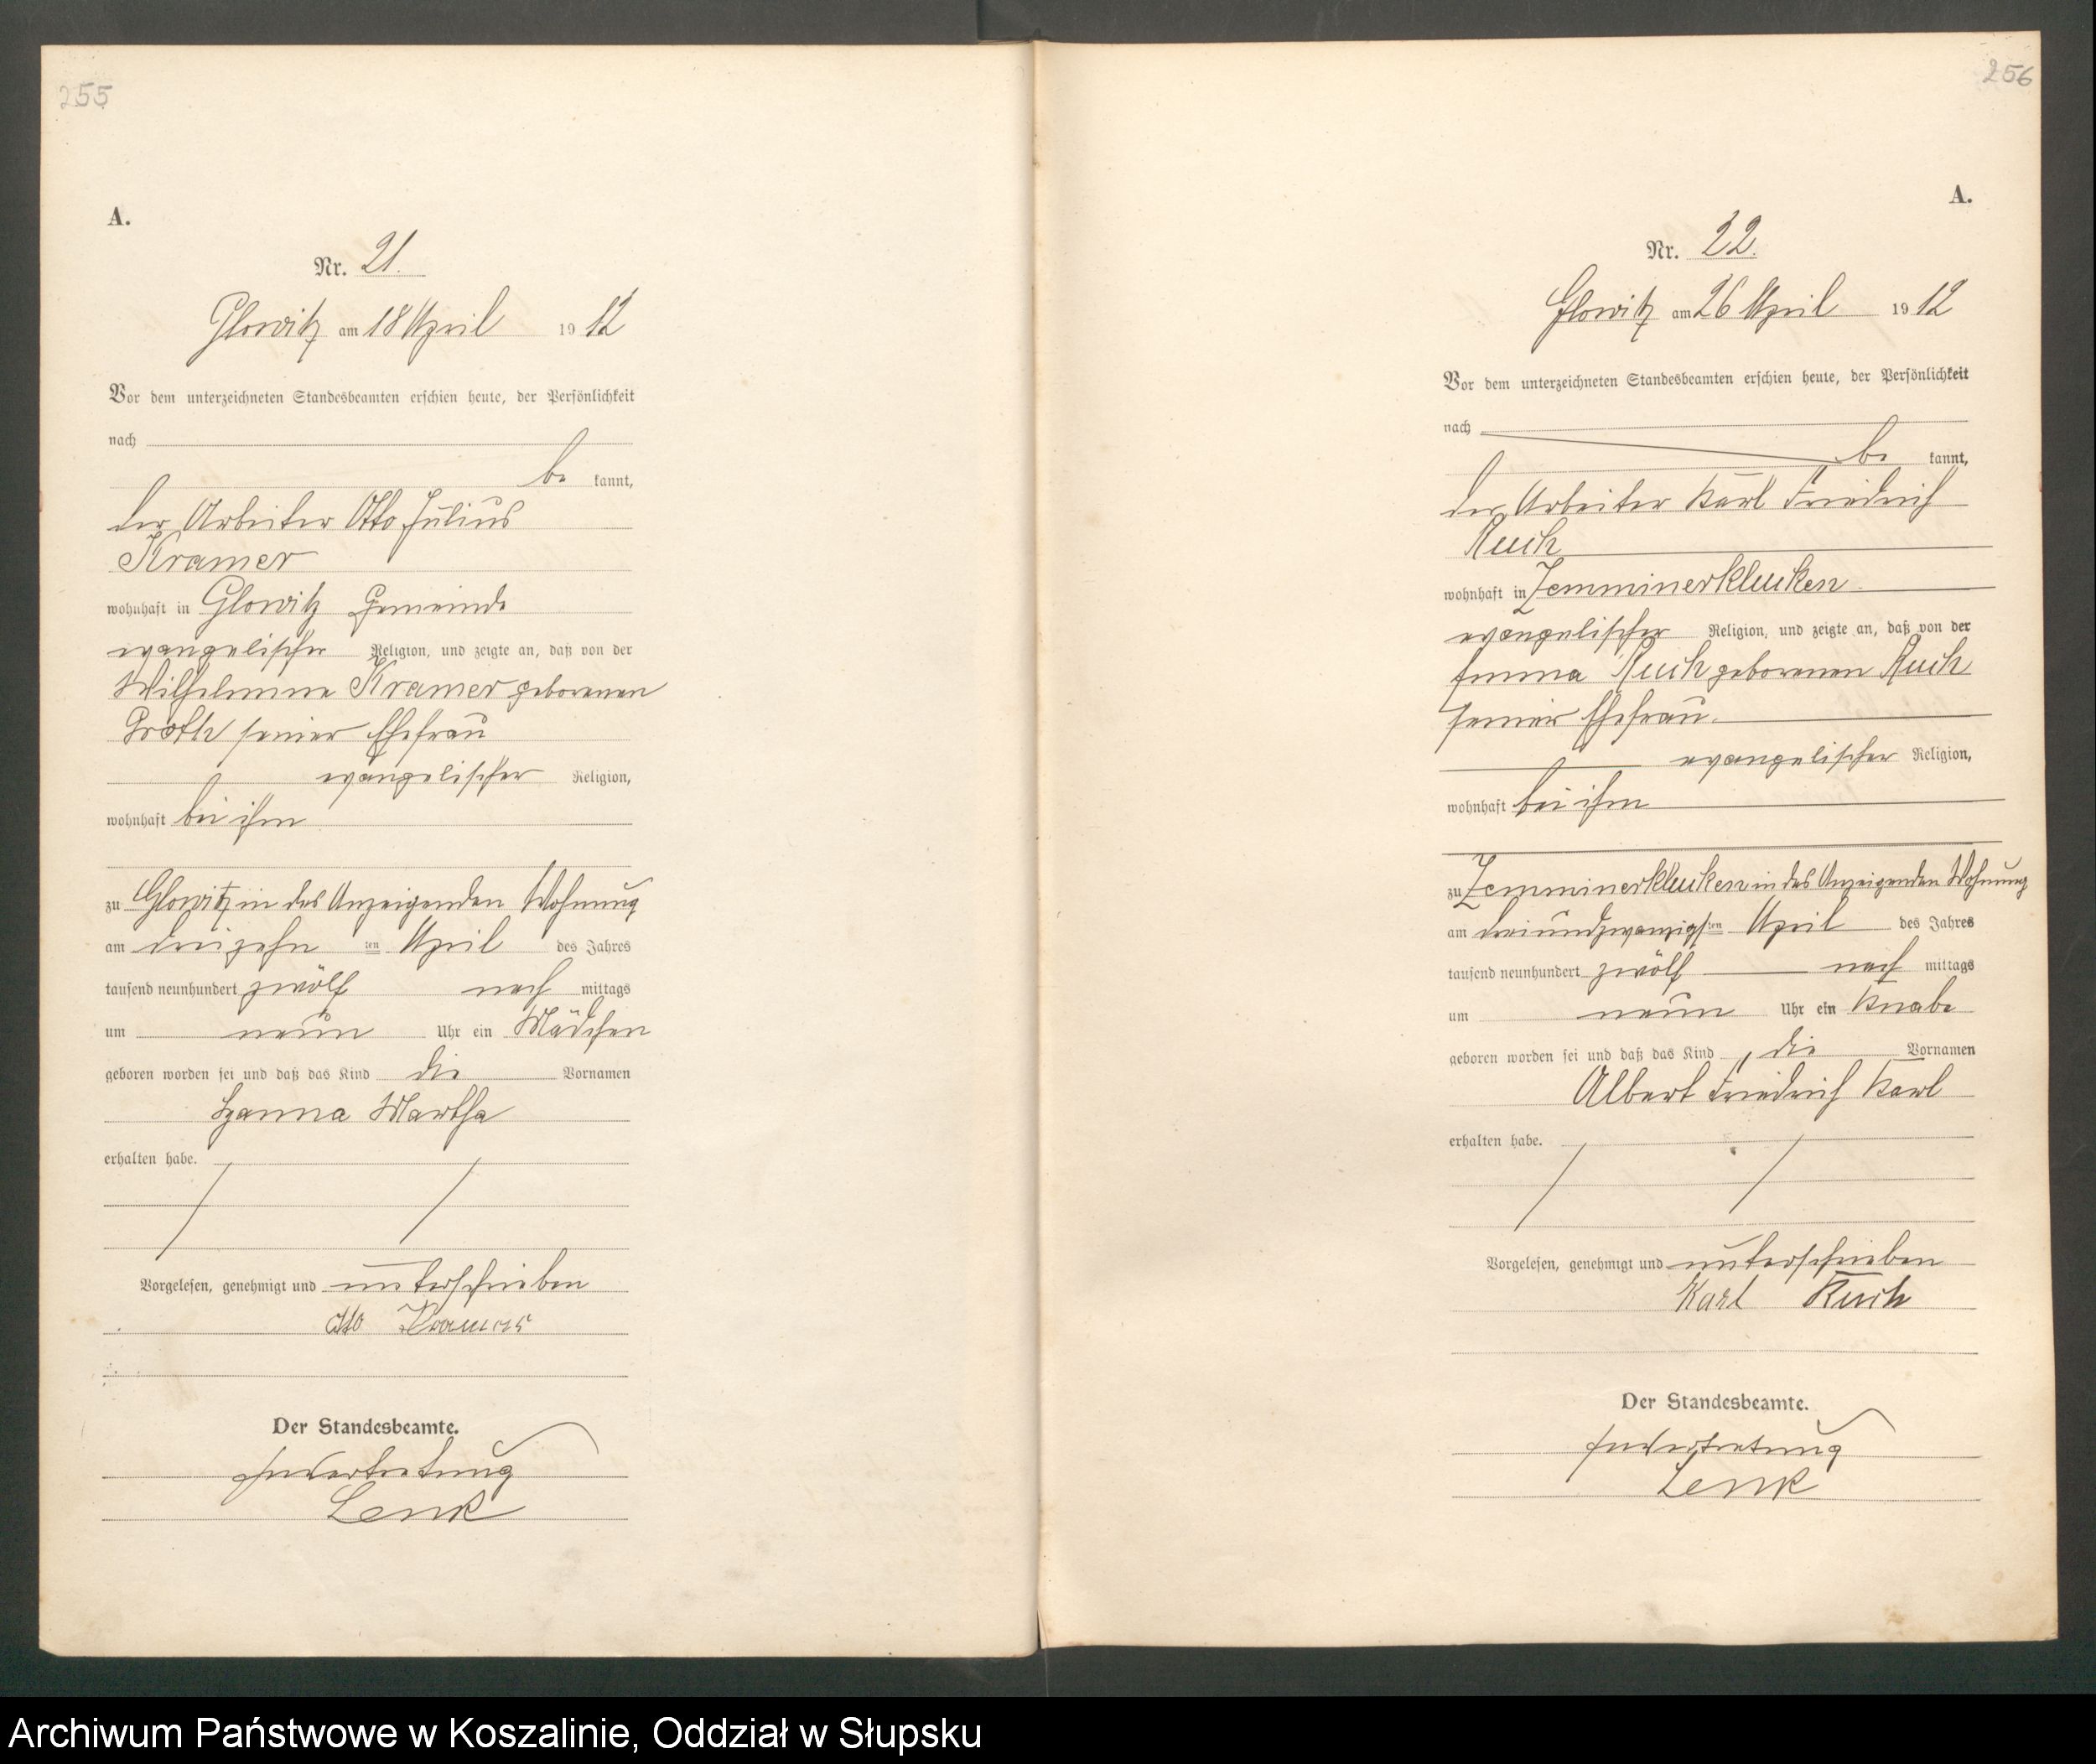 255
A.
Nr. 21.
Glowitz am 18 April 1912
Vor dem unterzeichneten Standesbeamten erschien heute, der Persönlichkeit
nach
be kannt,
der Arbeiter Otto Julius
Kramer
wohnhaft in Glowitz Gemeinde
evangelischer Religion, und zeigte an, daß von der
Wilhelmine Kramer geborenen
Groth seiner Ehefrau
evangelischer Religion,
wohnhaft bei ihm
zu Glowitz in des Anzeigenden Wohnung
am dreizehn ten April des Jahres
tausend neunhundert zwölf nach mittags
um neun Uhr ein Mädchen
geboren worden sei und daß das Kind die Vornamen
Hanna Martha
erhalten habe.
Vorgelesen, genehmigt und unterschrieben
Otto Kramer
Der Standesbeamte.
In Vertretung
Lenk
256
A.
Nr. 22.
Glowitz am 26 April 1912
Vor dem unterzeichneten Standesbeamten erschien heute, der Persönlichkeit
nach
be kannt,
der Arbeiter Karl Friedrich
Ruch
wohnhaft in Zemminerklucken
evangelischer Religion, und zeigte an, daß von der
Emma Ruch geborenen Ruch
seiner Ehefrau.
evangelischer Religion,
wohnhaft bei ihm
zu Zemminerklucken in des Anzeigenden Wohnung
am dreiundzwanzigsten April des Jahres
tausend neunhundert zwölf nach mittags
um neun Uhr ein Knabe
geboren worden sei und daß das Kind die Vornamen
Albert Friedrich Karl
erhalten habe.
Vorgelesen, genehmigt und unterschrieben
Karl Ruch
Der Standesbeamte.
In Vertretung
Lenk
Archiwum Państwowe w Koszalinie, Oddział w Słupsku